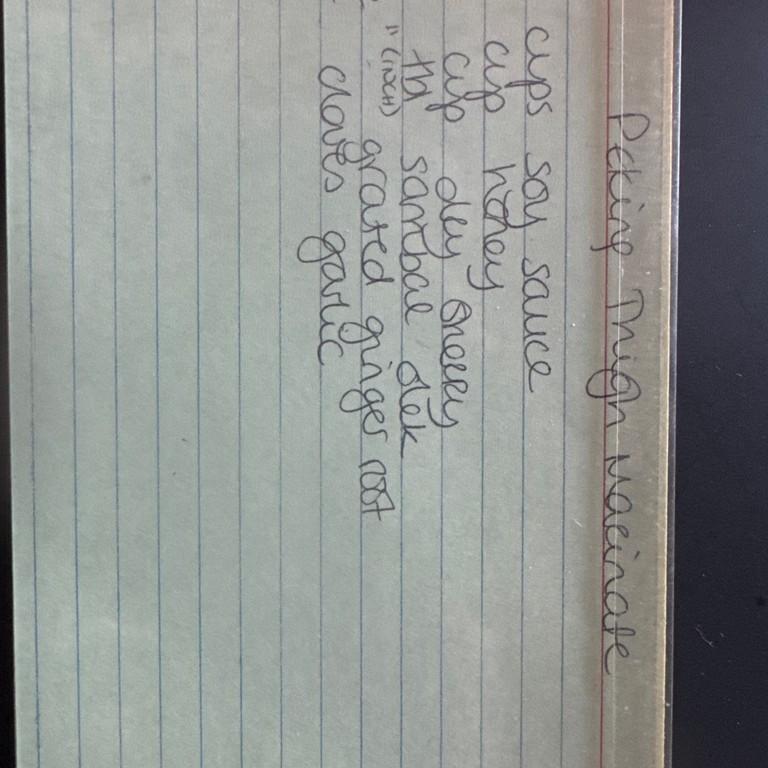 Peking Thigh Marinate
cups soy sauce
cup honey
cup dry sherry
tbl sambal olek
" (inch) grated ginger root
cloves garlic